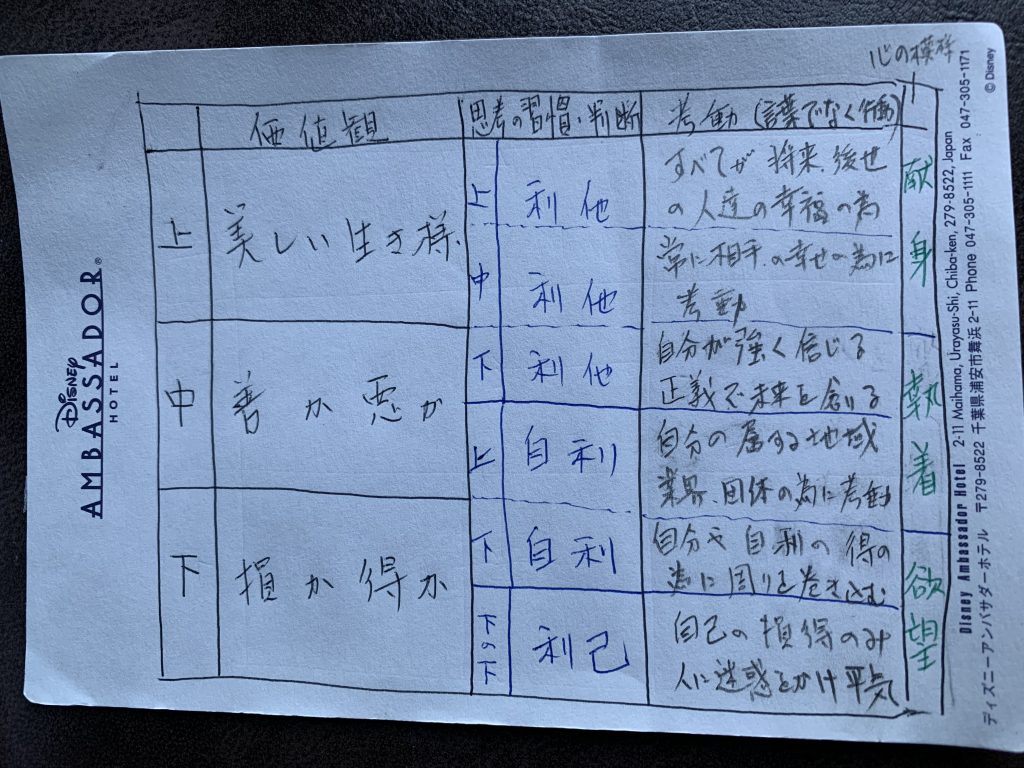 心の模様
価値観 思考の習慣・判断 考動 (言葉でなく行動)
上 美しい生き様
上 利他 すべてが将来、後世
の人達の幸福の為
中 利他 常に相手の幸せの為に
考動
献身
中 善か悪か
下 利他 自分が強く信じる
正義で未来を創りる
上 自利 自分の属する地域
業界、団体の為に考動
執着
下 損か得か
下 自利 自分や自利の得の
為に周りを巻き込む
下の下 利己 自己の損得のみ
人に迷惑をかけ平気
欲望
Disney
AMBASSADOR®
HOTEL
Disney Ambassador Hotel 2-11 Maihama, Urayasu-Shi, Chiba-ken, 279-8522, Japan
ディズニーアンバサダーホテル 〒279-8522 千葉県浦安市舞浜 2-11 Phone 047-305-1111 Fax 047-305-1171
© Disney